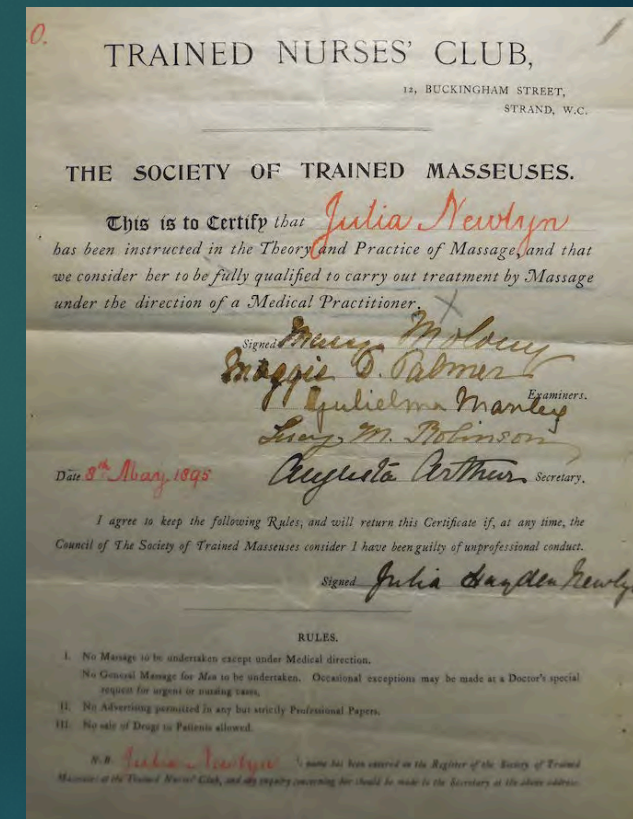 0.
TRAINED NURSES' CLUB,
12, BUCKINGHAM STREET,
STRAND, W.C.
THE SOCIETY OF TRAINED MASSEUSES.
This is to Certify that Julia Newlyn
has been instructed in the Theory and Practice of Massage, and that
we consider her to be fully qualified to carry out treatment by Massage
under the direction of a Medical Practitioner.
Signed Molony
Maggie D. Palmer
Examiners.
Gulielma Manley
Lucy M. Robinson
Date 8th May 1895 Augusta Arthur Secretary.
I agree to keep the following Rules, and will return this Certificate if, at any time, the
Council of The Society of Trained Masseuses consider I have been guilty of unprofessional conduct.
Signed Julia Hayden Newly
RULES.
I. No Massage to be undertaken except under Medical direction.
No General Massage for Men to be undertaken. Occasional exceptions may be made at a Doctor's special
request for urgent or nursing cases.
II. No Advertising permitted in any but strictly Professional Papers.
III. No sale of Drugs to Patients allowed.
N.B. Julia Newlyn's name has been entered on the Register of the Society of Trained
Masseuses at the Trained Nurses' Club, and any enquiry concerning her should be made to the Secretary at the above address.